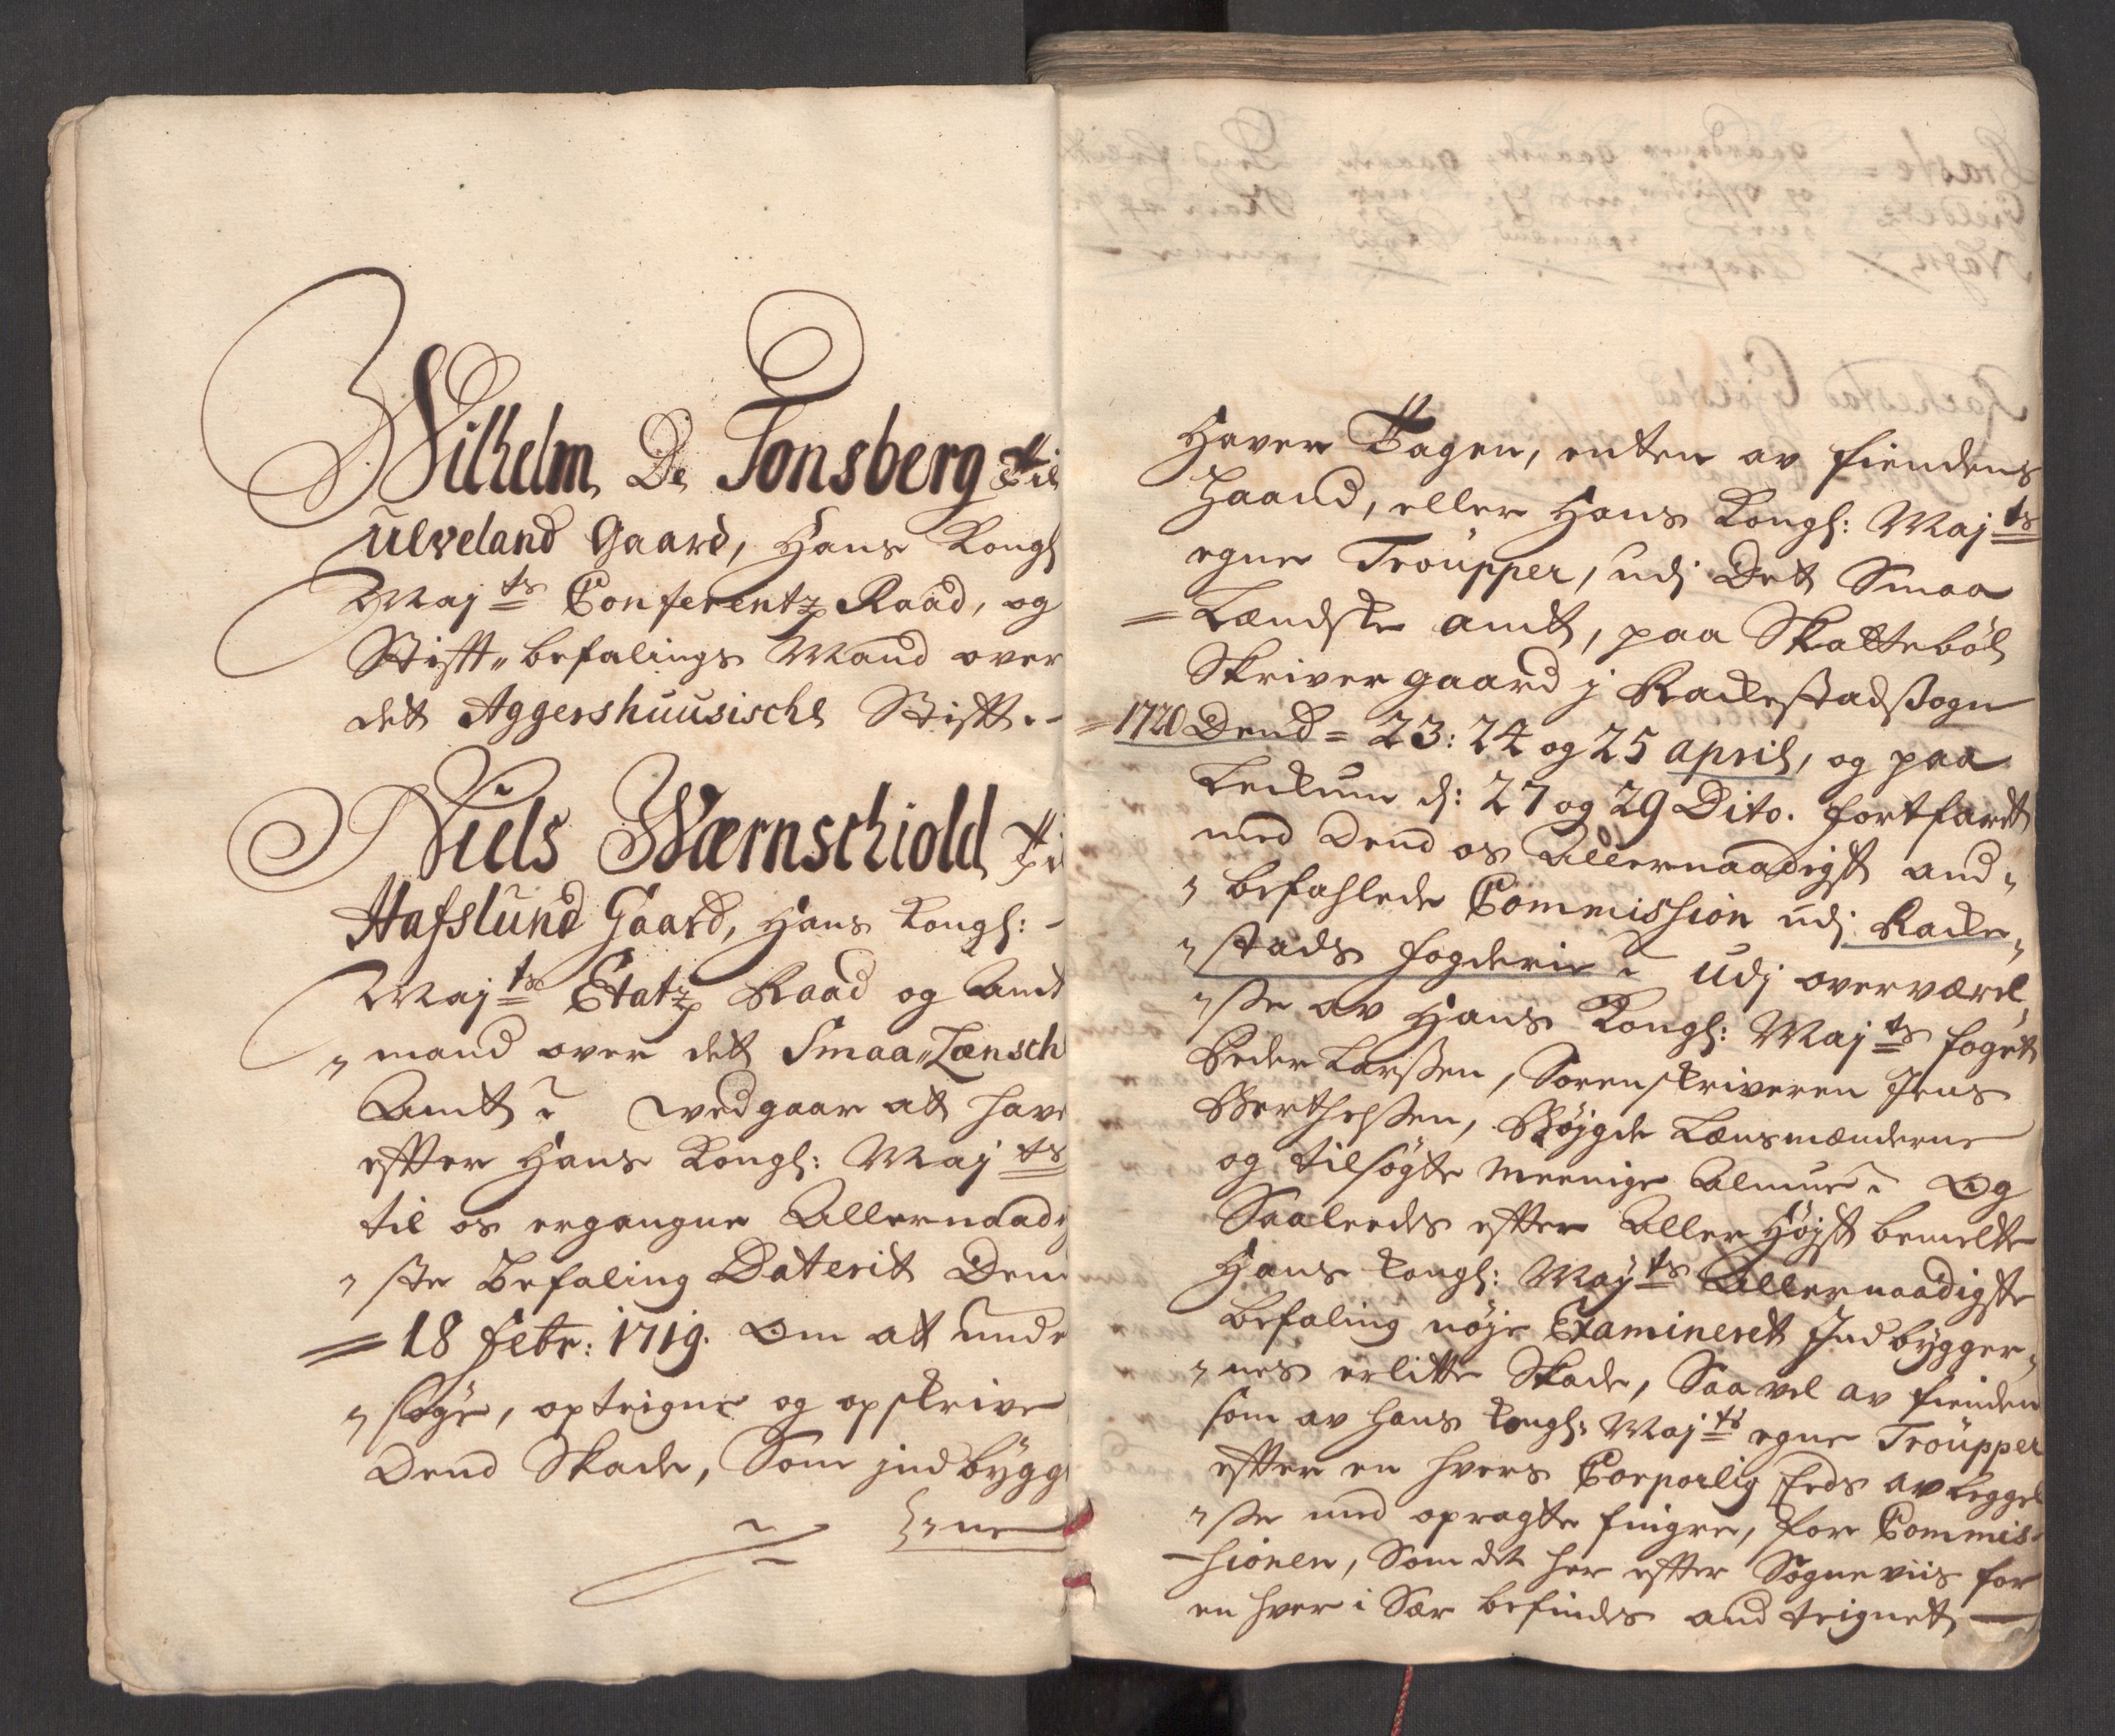 Wilhelm De Tonsberg til
Ulveland Gaard, Hans Kongl
Majts Conferentz Raad, og
Stift„befalings Mand over
det Aggershuusische Stift.-
Niels Wærnschiold ti
Hafslund Gaard, Hans Kongl: -
Majts Etatz Raad og Amt
„mand over det Smaa„Lænsch
Amt wedgaar at have
effter Hans Kongl: Majts
til os ergangne Allernaadig
„ste Befaling Daterit Den
= 18 Febr: 1719. Om at unde
„søge, opteigne og opskrive
Dend Skade, Som jndbygg
„ne
Haver Tagen, enten av fiendens
Haand, eller Hans Kongl: Majts
egne Troupper, udj Det Smaa
= Lændske amt, paa Skattebøl
Skriver gaard j Rackestadsogn
= 1720 Dend = 23: 24 og 25 april, og paa
Leckum d: 27 og 29 Dito. fortfaret
med Dend os Allernaadigst and„
„befahlede Commission udj Racke„
„stads fogderie udj overværel„
„sse av Hans Kongl: Majts foget
Peder Larssen, Sorenskriveren Jens
Berthelssen, Bøygde Lænsmænderne
og tilsøgte Meenige Almue Og
Saaleedes effter Aller Høyst bemelte
Hans Kongl: Majts Allernaadigste
befaling nøje Examineret Jndbygger„
„nes erlitte Skade, Saavel av fienden
som av Hans Kongl: Majts egne Troupper
effter en hvers Corporlig Eeds avleggel
„sse med opragte fingre, for Commis-
-sionen, Som det her effter Sogneviis for
en hver i Sær befindes and teignet —